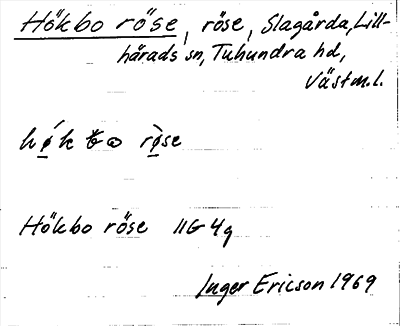 Hökbo röse, röse, Slagårda, Lill-
hårads sn, Tuhundra hd,
Västm.l.
Hökbo röse 11G 4g
Inger Ericson 1969